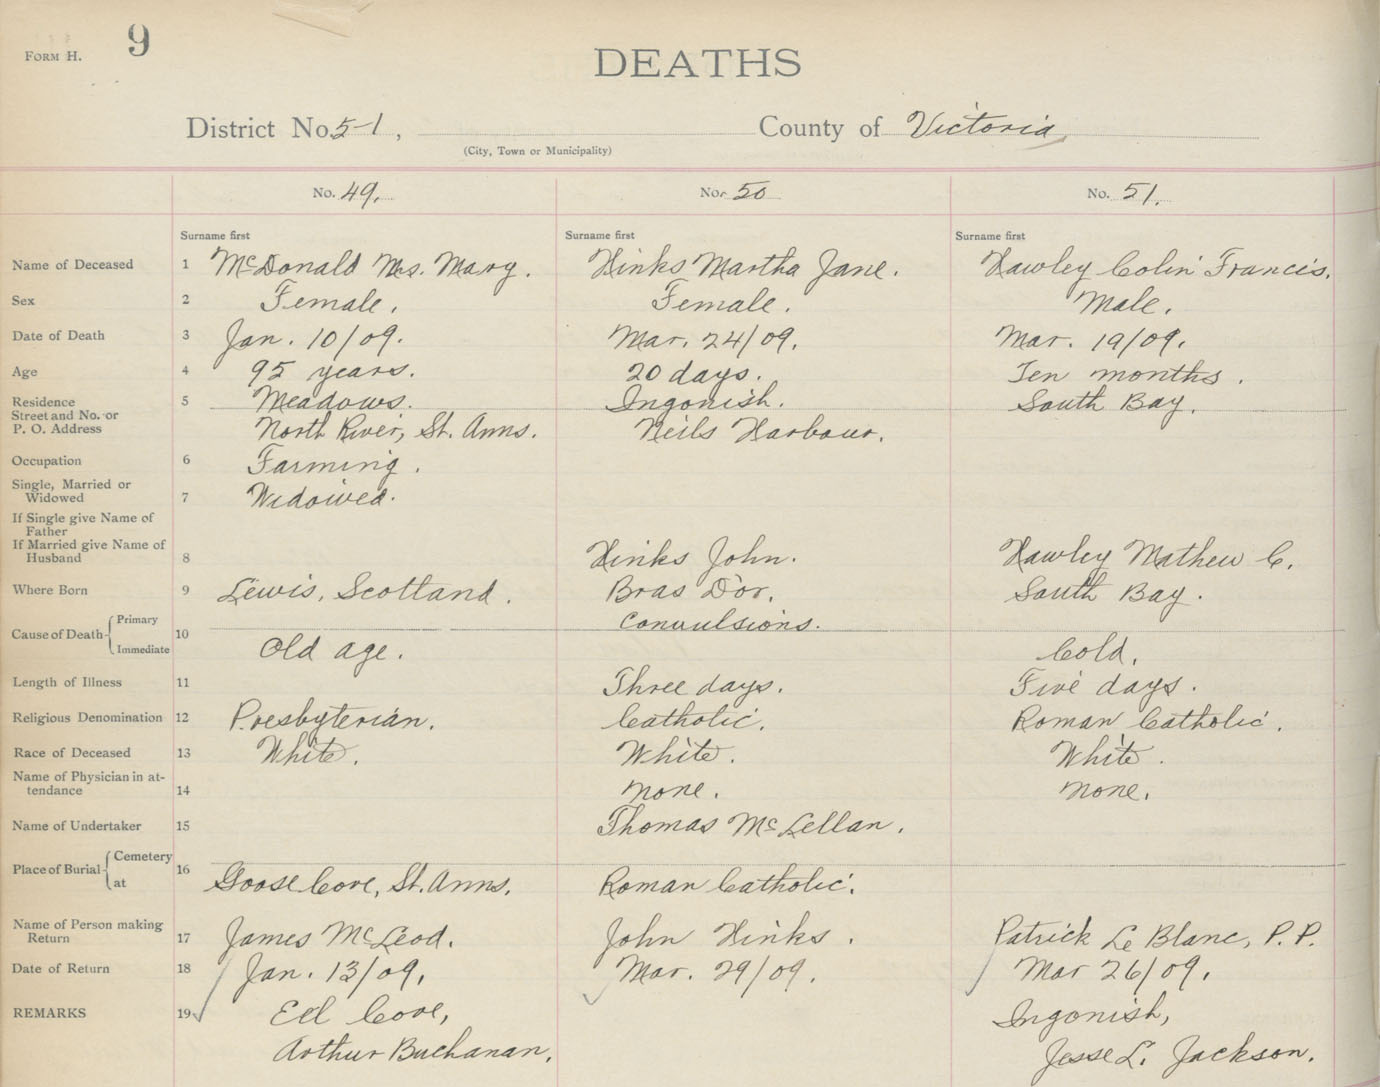 FORM H. 9
DEATHS
District No. 5-1, County of Victoria
(City, Town or Municipality)
No. 49. No. 50 No. 51.
Surname first Surname first Surname first
Name of Deceased 1 McDonald Mrs. Mary. Hinks Martha Jane. Hawley Colin Francis.
Sex 2 Female. Female. Male.
Date of Death 3 Jan. 10/09. Mar. 24/09. Mar. 19/09.
Age 4 95 years. 20 days. Ten months.
Residence 5 Meadows. Ingonish. South Bay.
Street and No. or
P. O. Address North River, St. Anns. Neils Harbour.
Occupation 6 Farming.
Single, Married or
Widowed 7 Widowed.
If Single give Name of
Father
If Married give Name of
Husband 8 Hinks John. Hawley Mathew C.
Where Born 9 Lewis, Scotland. Bras D'or. South Bay.
Cause of Death Primary 10 Convulsions.
Immediate Old age. Cold.
Length of Illness 11 Three days. Five days.
Religious Denomination 12 Presbyterian. Catholic. Roman Catholic.
Race of Deceased 13 White. White. White.
Name of Physician in at-
tendance 14 None. None.
Name of Undertaker 15 Thomas McLellan.
Place of Burial Cemetery 16
at Goose Cove, St. Anns. Roman Catholic.
Name of Person making
Return 17 James McLeod. John Hinks. Patrick Le Blanc, P. P.
Date of Return 18 Jan. 13/09. Mar. 29/09. Mar 26/09.
REMARKS 19 Eel Cove, Ingonish,
Arthur Buchanan. Jesse L. Jackson.